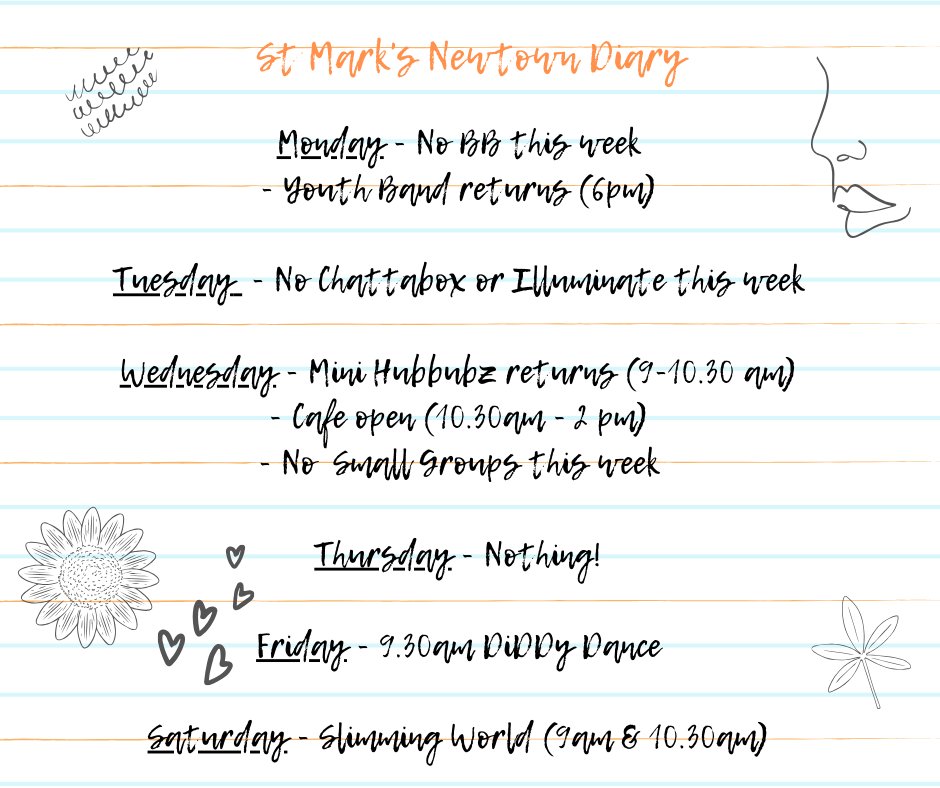 St Mark's Newtown Diary
Monday - No BB this week
- Youth Band returns (6pm)
Tuesday - No Chattabox or Illuminate this week
Wednesday - Mini Hubbubz returns (9-10.30 am)
- Cafe open (10.30am - 2 pm)
- No Small Groups this week
Thursday - Nothing!
Friday - 9.30am DiDDy Dance
Saturday - Slimming World (9am & 10.30am)